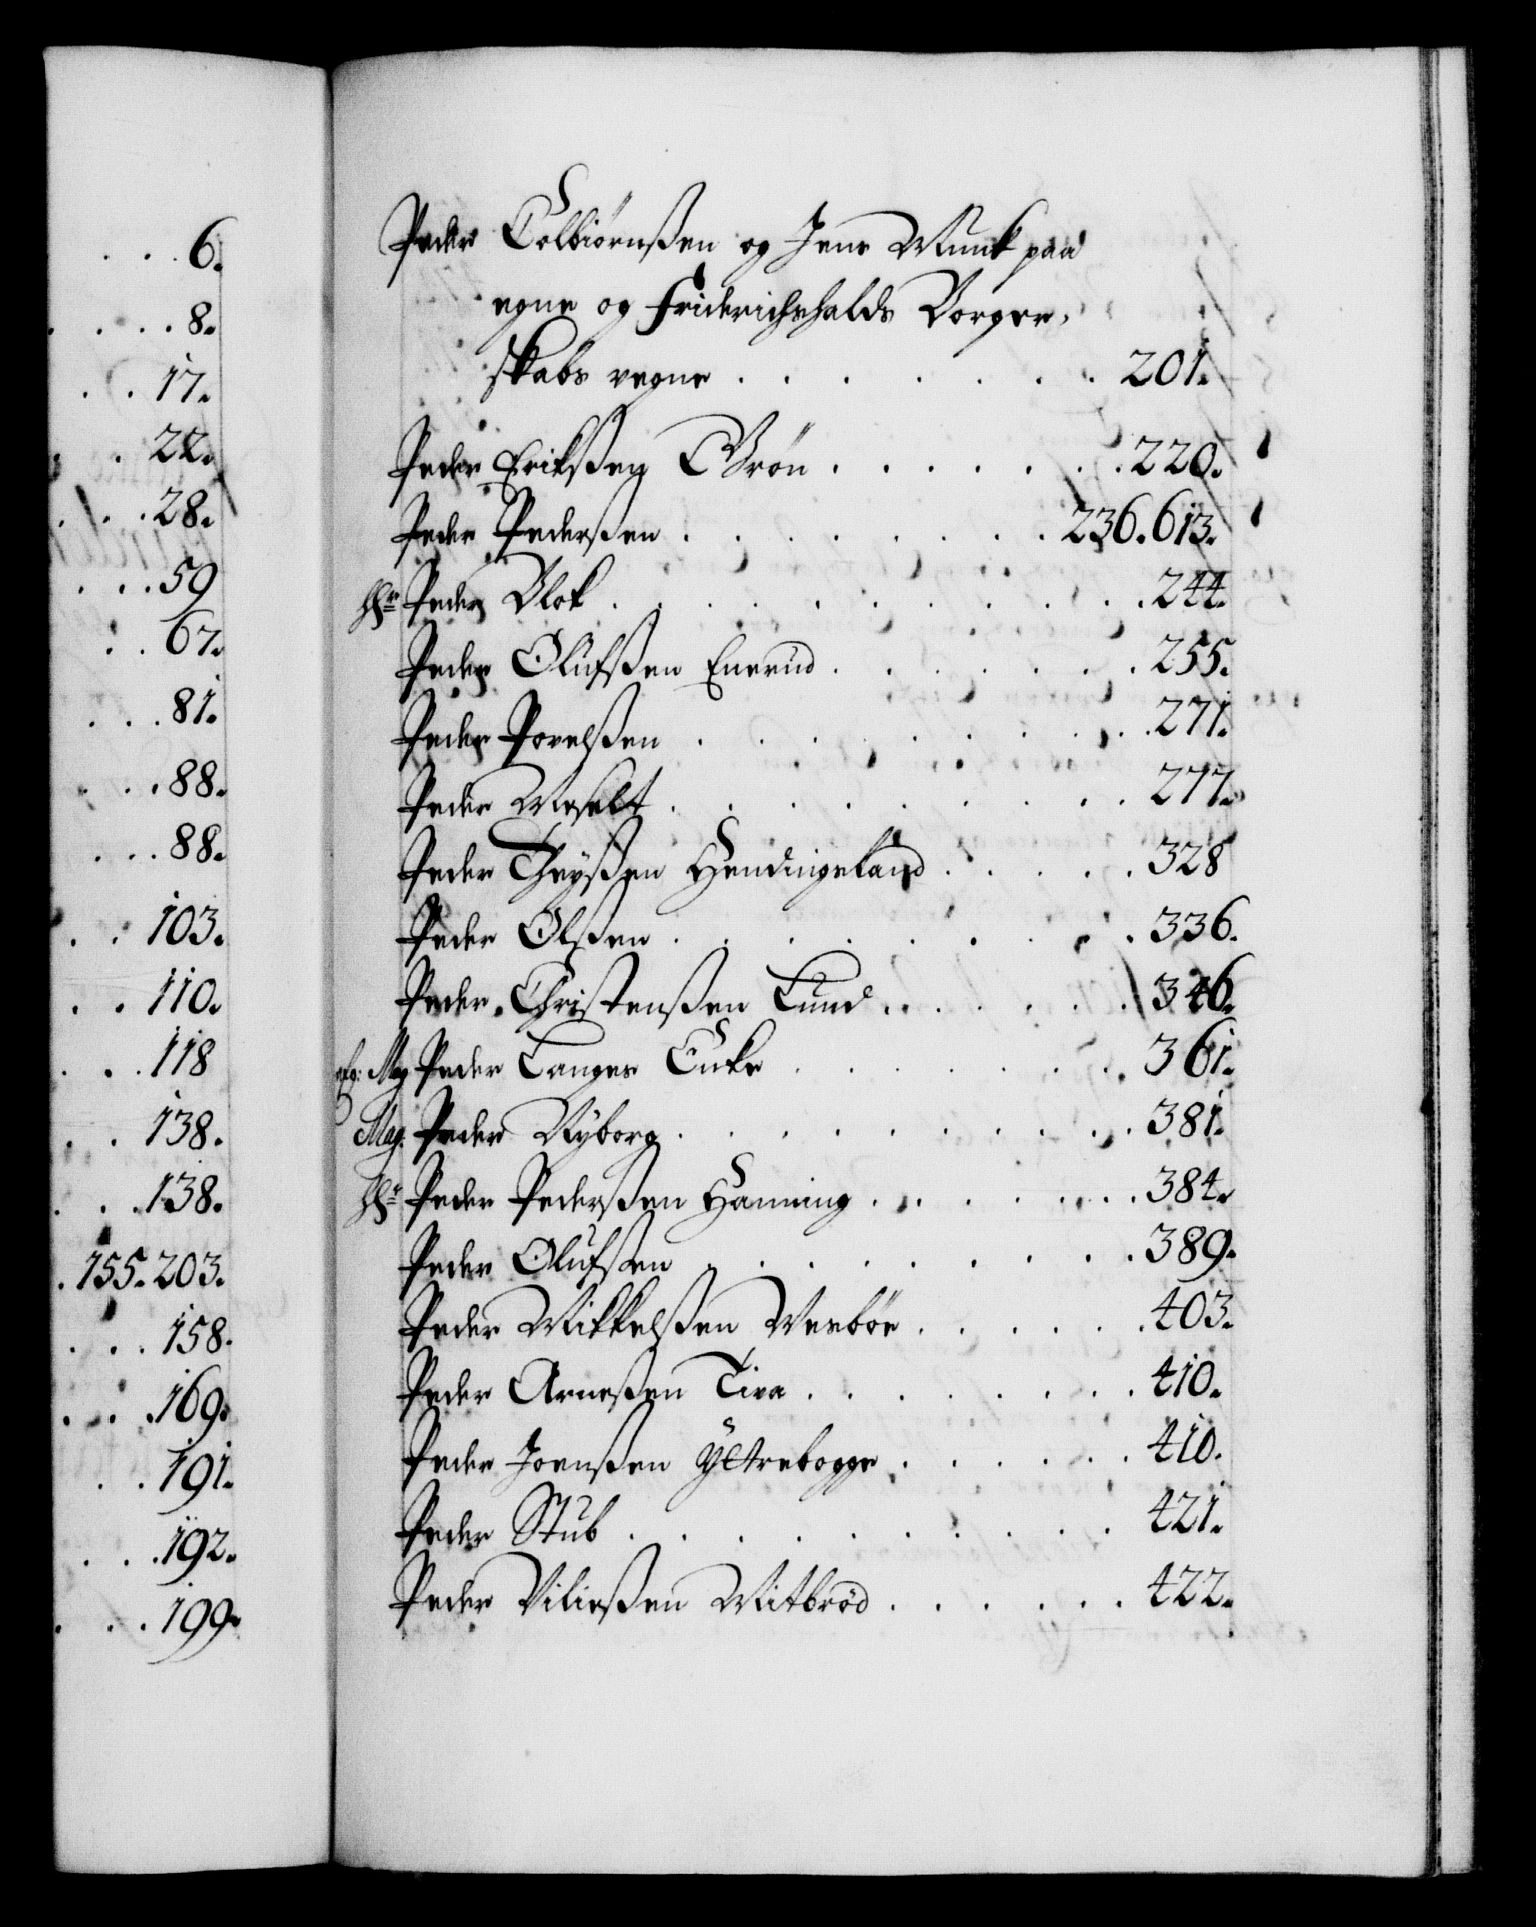 6.
8.
17.
22.
28.
59
67.
81.
88.
88.
103.
110.
118
138.
138.
155. 203.
158.
169.
191.
192.
199.
Peder Colbiørnsßen og Jens Munk paa
egne og Friderichshalds Borger-
skabs vegne . . . . . . . 201.
Peder Erikßen Grön . . . . . . 220.
Peder Pederßen . . . . . . . 236. 613.
Hr. Peder Blok . . . . . . . . . . 244.
Peder Olufßen Enerud . . . . . . 255.
Peder Povelßen . . . . . . . . . 271.
Peder Meselt . . . . . . . . . 277.
Peder Theyßen Hendingeland . . . . . 328
Peder Olßen . . . . . . . . . 336.
Peder Christenßen Lund . . . . . . 346.
Mag Peder Langes Enke . . . . . . 361.
Mag. Peder Nyborg . . . . . . . . . 381.
Hr. Peder Pederßen Hanning . . . . . . 384.
Peder Olufsen . . . . . . . . 389.
Peder Mikkelßen Mesböe . . . . . 403.
Peder Arneßen Tiva . . . . . . . 410.
Peder Joenßen Yttrebogge . . . . . 410.
Peder Stub . . . . . . . . . 421.
Peder Villeßen Mitbröd . . . . . 422.